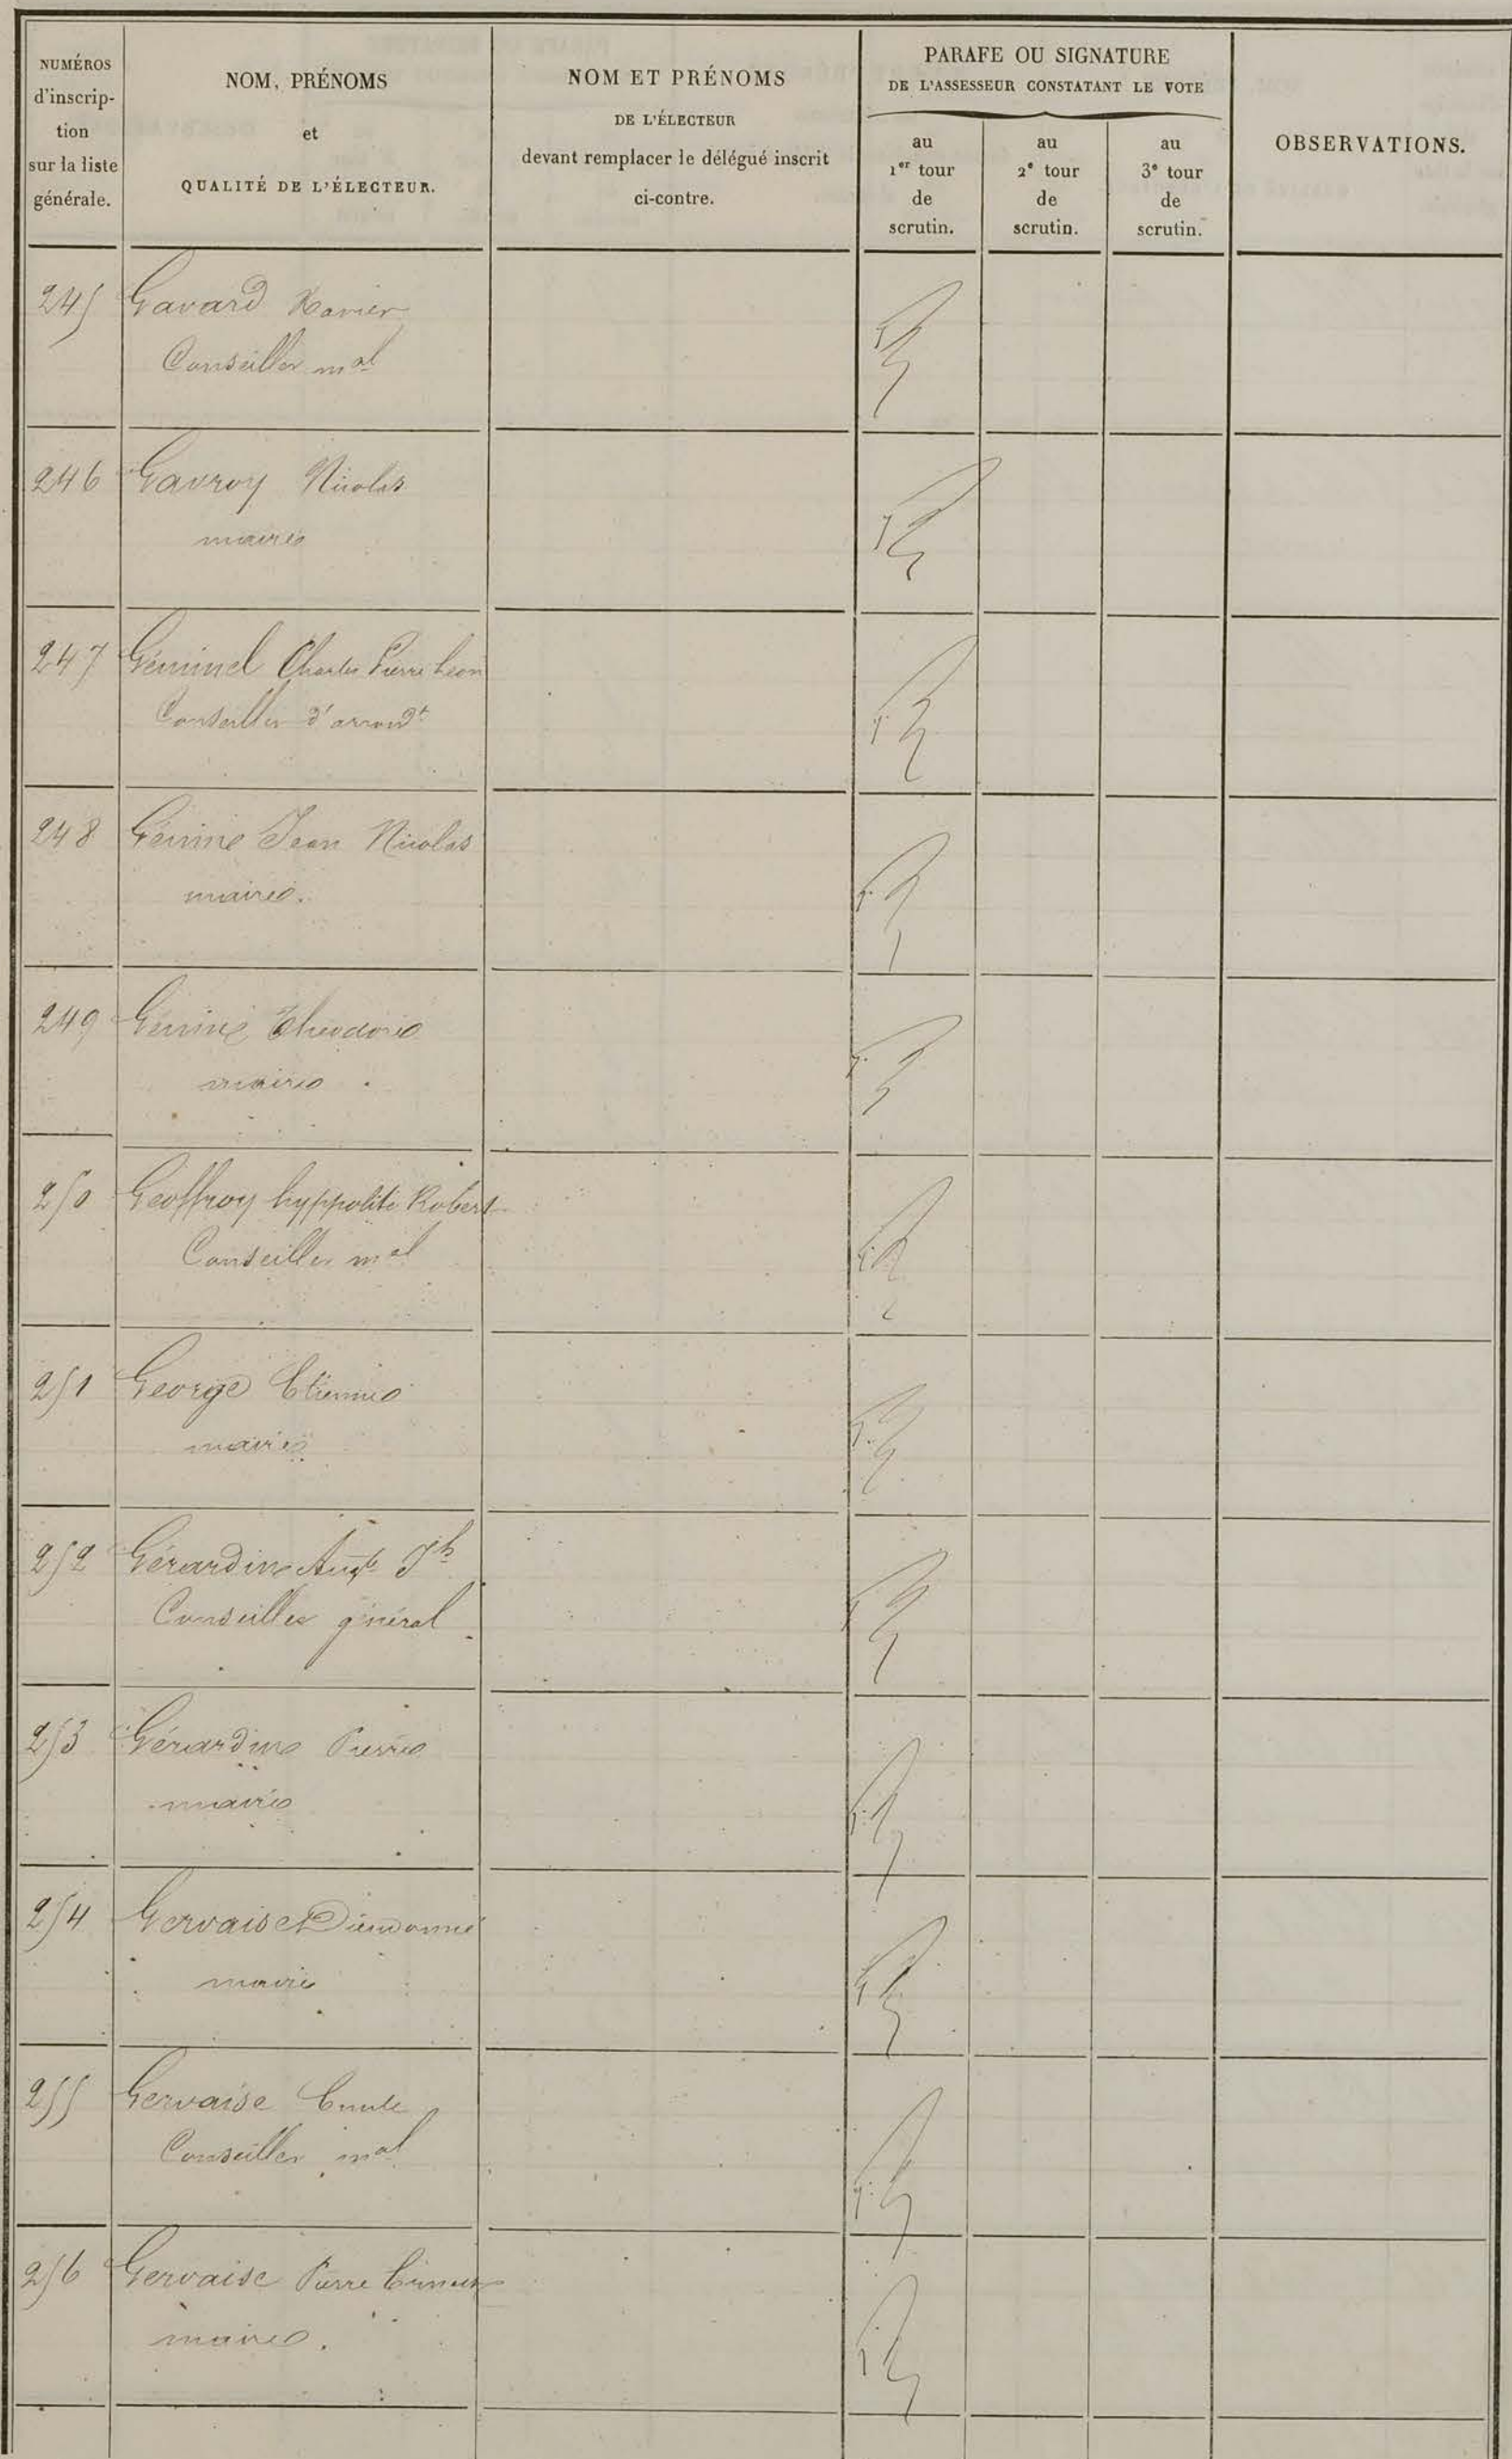 NUMÉROS
d'inscrip-
tion
sur la liste
générale.
NOM, PRÉNOMS
et
QUALITÉ DE L'ÉLECTEUR.
NOM ET PRÉNOMS
DE L'ÉLECTEUR
devant remplacer le délégué inscrit
ci-contre.
PARAFE OU SIGNATURE
DE L'ASSESSEUR CONSTATANT LE VOTE
au
1er tour
de
scrutin.
au
2e tour
de
scrutin.
au
3e tour
de
scrutin.
OBSERVATIONS.
245 Gavard Xavier
Conseiller mal
246 Gavroy Nicolas
maire
247 Charles Pierre Léon
Conseiller d'arrondt
248 Génine Jean Nicolas
maire.
249 Génine Théodore
maire
250 Geoffroy hyppolite Robert
Conseiller mal
251 George Etienne
maire
252 Gérardin Augte Jh
Conseiller général
253 Gérardin Pierre
maire
254 Gervaise Dieudonné
maire
255 Gervaise Emile
Conseiller mal
256 Gervaise Pierre
maire.